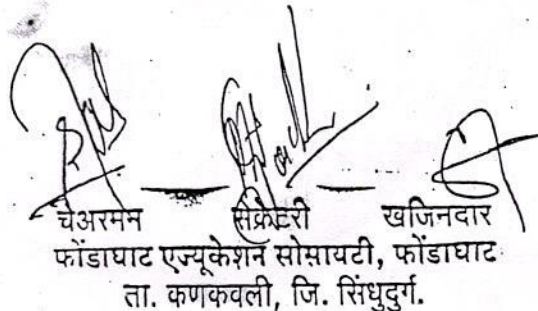 चेअरमन सेक्रेटरी खजिनदार
फोंडाघाट एज्यूकेशन सोसायटी, फोंडाघाट
ता. कणकवली, जि. सिंधुदुर्ग.